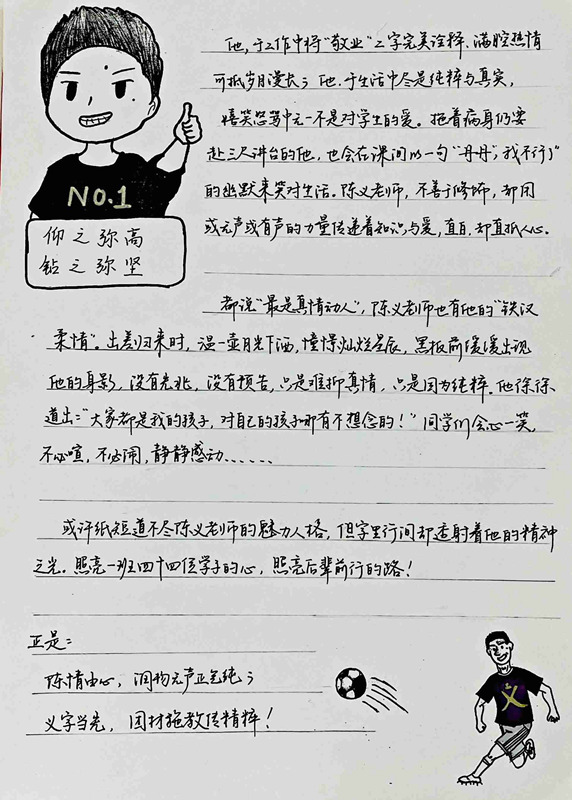 NO.1
仰之弥高
钻之弥坚
他，于工作中将“敬业”二字完美诠释，满腔热情
可抵岁月漫长；他，于生活中尽是纯粹与真实，
嬉笑怒骂中无一不是对学生的爱。拖着病身仍要
赴三尺讲台的他，也会在课间以一句“丹丹，我不行了”
的幽默来笑对生活。陈义老师，不善于修饰，却用
或无声或有声的力量传递着知识与爱，直白，却直抵人心。
都说“最是真情动人”，陈义老师也有他的“铁汉
柔情”。出差归来时，温一壶月光下酒，憧憬灿烂星辰，黑板前缓缓出现
他的身影，没有先兆，没有预告，只是难抑真情，只是因为纯粹。他徐徐
道出：“大家都是我的孩子，对自己的孩子哪有不想念的！”同学们会心一笑，
不必喧，不必闹，静静感动……
或许纸短道不尽陈义老师的魅力人格，但字里行间却透射着他的精神
之光。照亮一班四十四位学子的心，照亮后辈前行的路！
正是：
陈情由心，润物无声正气纯；
义字当先，因材施教传精粹！
义